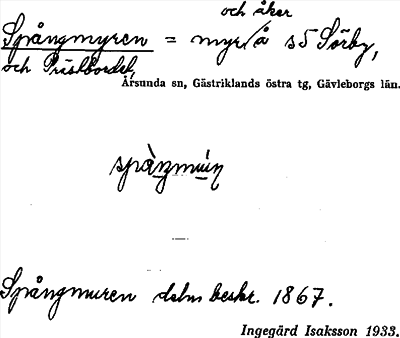 och åker
Spångmyren = myr å sö Sörby,
och Prästbordet,
Årsunda sn, Gästriklands östra tg, Gävleborgs län.
Spångmuren delm beskr. 1867.
Ingegärd Isaksson 1933.